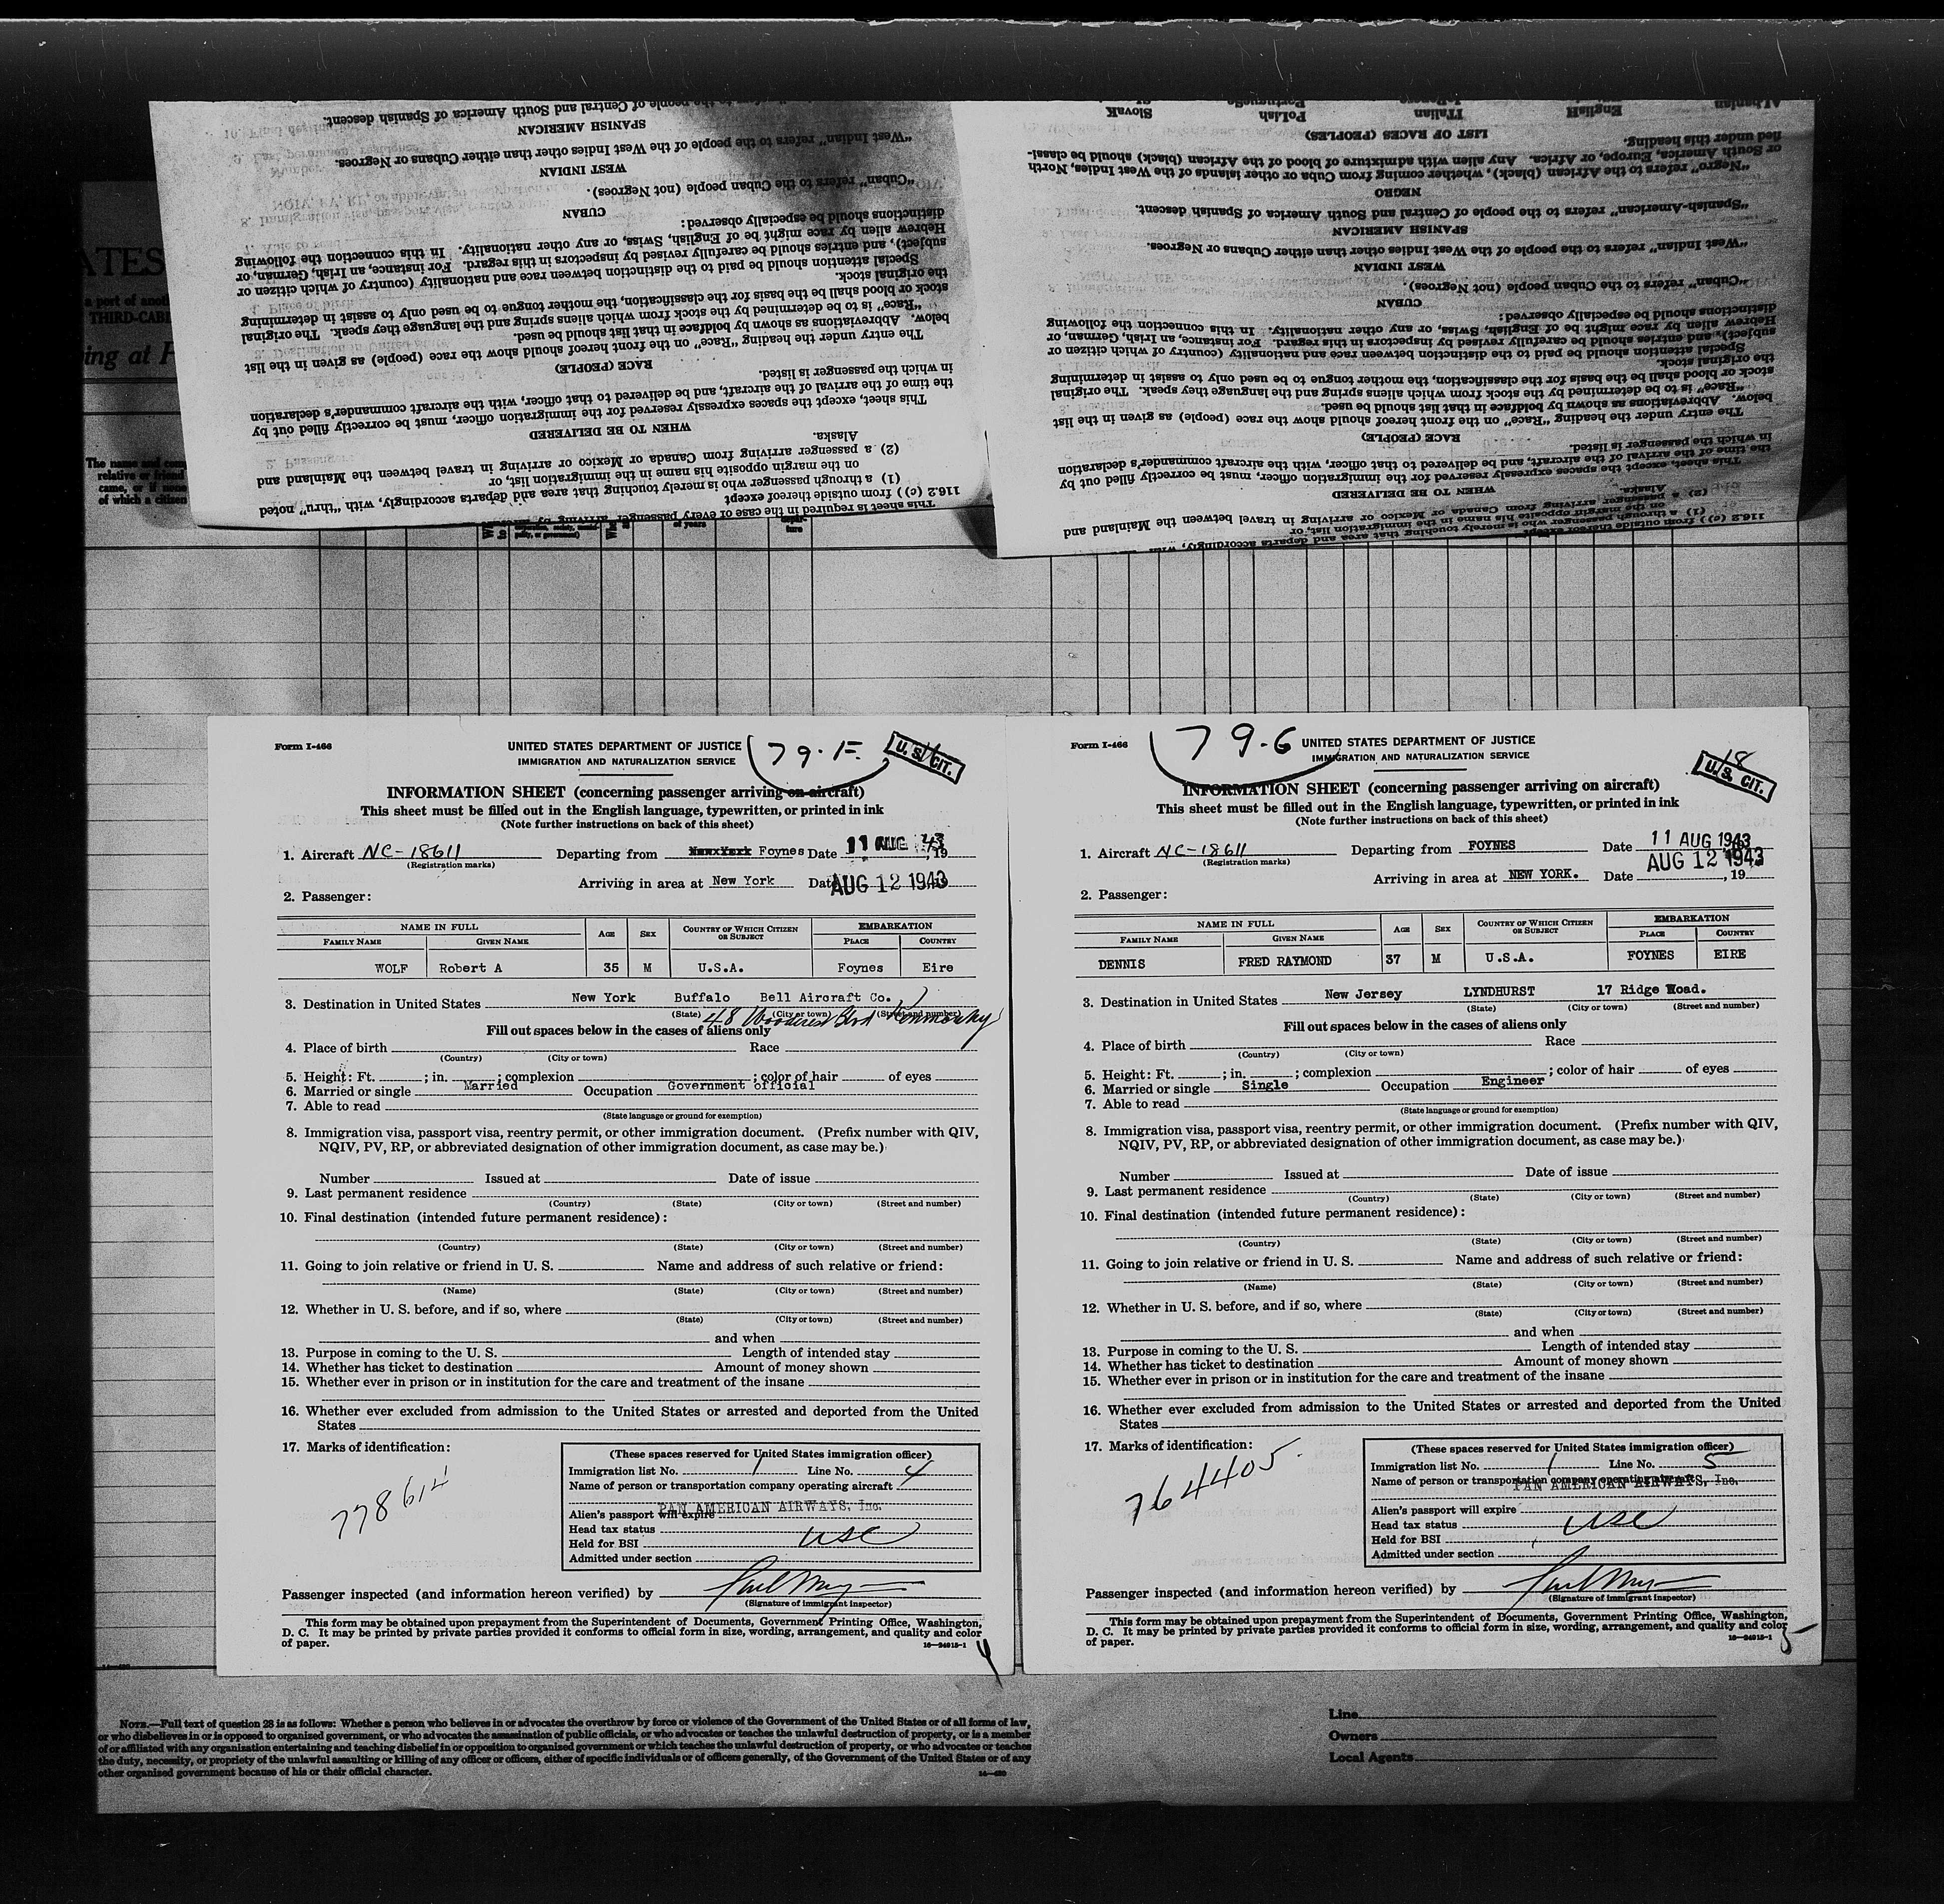 10. Final destin
of Central and South America of Spanish descent.
SPANISH AMERICAN
"West Indian" refers to the people of the West Indies other than either Cubans or Negroes.
WEST INDIAN
"Cuban" refers to the Cuban people (not Negroes).
CUBAN
distinctions should be especially observed:
Hebrew alien by race might be of English, Swiss, or any other nationality. In this connection the following
subject), and entries should be carefully revised by inspectors in this regard. For instance, an Irish, German, or
Special attention should be paid to the distinction between race and nationality (country of which citizen or
the original stock.
stock or blood shall be the basis for the classification, the mother tongue to be used only to assist in determining
"Race" is to be determined by the stock from which aliens spring and the language they speak. The original
below. Abbreviations as shown by boldface in that list should be used.
The entry under the heading "Race" on the front hereof should show the race (people) as given in the list
RACE (PEOPLE)
in which the passenger is listed.
the time of the arrival of the aircraft, and be delivered to that officer, with the aircraft commander's declaration
This sheet, except the spaces expressly reserved for the immigration officer, must be correctly filled out by
WHEN TO BE DELIVERED
Alaska.
(2) a passenger arriving from Canada or Mexico or arriving in travel between the Mainland and
on the margin opposite his name in the immigration list, or
(1) a through passenger who is merely touching that area and departs accordingly, with "thru" noted
116.2 (c)) from outside thereof except
This sheet is required in the case of every passenger arriving by
Albanian English ITalian PoLish Portuguese SlovaK
LIST OF RACES (PEOPLES)
fied under this heading.
or South America, Europe, or Africa. Any alien with admixture of blood of the African (black) should be classi-
"Negro" refers to the African (black), whether coming from Cuba or other islands of the West Indies, North
NEGRO
"Spanish-American" refers to the people of Central and South America of Spanish descent.
SPANISH AMERICAN
"West Indian" refers to the people of the West Indies other than either Cubans or Negroes.
WEST INDIAN
"Cuban" refers to the Cuban people (not Negroes).
CUBAN
distinctions should be especially observed:
Hebrew alien by race might be of English, Swiss, or any other nationality. In this connection the following
subject), and entries should be carefully revised by inspectors in this regard. For instance, an Irish, German, or
Special attention should be paid to the distinction between race and nationality (country of which citizen or
the original stock.
stock or blood shall be the basis for the classification, the mother tongue to be used only to assist in determining
"Race" is to be determined by the stock from which aliens spring and the language they speak. The original
below. Abbreviations as shown by boldface in that list should be used.
The entry under the heading "Race" on the front hereof should show the race (people) as given in the list
RACE (PEOPLE)
in which the passenger is listed.
the time of the arrival of the aircraft, and be delivered to that officer, with the aircraft commander's declaration
This sheet, except the spaces expressly reserved for the immigration officer, must be correctly filled out by
WHEN TO BE DELIVERED
Alaska.
(2) a passenger arriving from Canada or Mexico or arriving in travel between the Mainland and
on the margin opposite his name in the immigration list, or
(1) a through passenger who is merely touching that area and departs accordingly, with
116.2 (c)) from outside thereof except
ATES
a port of anoth
THIRD-CABI
ing at H
The name and com
relative or friend
came, or if none
of which a citizen
of years
Form I-466
UNITED STATES DEPARTMENT OF JUSTICE
IMMIGRATION AND NATURALIZATION SERVICE
79-F
U.S. CIT.
INFORMATION SHEET (concerning passenger arriving on aircraft)
This sheet must be filled out in the English language, typewritten, or printed in ink
(Note further instructions on back of this sheet)
1. Aircraft NC-18611 Departing from New York Foynes Date 11 AUG 43, 19
(Registration marks)
Arriving in area at New York Date AUG 12 1943
2. Passenger:
NAME IN FULL AGE SEX COUNTRY OF WHICH CITIZEN OR SUBJECT EMBARKATION
FAMILY NAME GIVEN NAME PLACE COUNTRY
WOLF Robert A 35 M U.S.A. Foynes Eire
3. Destination in United States New York Buffalo Bell Aircraft Co.
(State) (City or town) (Street and number)
48 Blvd
Fill out spaces below in the cases of aliens only
4. Place of birth Race
(Country) (City or town)
5. Height: Ft. ; in. ; complexion ; color of hair of eyes
6. Married or single Married Occupation Government official
7. Able to read
(State language or ground for exemption)
8. Immigration visa, passport visa, reentry permit, or other immigration document. (Prefix number with QIV,
NQIV, PV, RP, or abbreviated designation of other immigration document, as case may be.)
Number Issued at Date of issue
9. Last permanent residence
(Country) (State) (City or town) (Street and number)
10. Final destination (intended future permanent residence):
(Country) (State) (City or town) (Street and number)
11. Going to join relative or friend in U. S. Name and address of such relative or friend:
(Name) (State) (City or town) (Street and number)
12. Whether in U. S. before, and if so, where
(State) (City or town) (Street and number)
and when
13. Purpose in coming to the U. S. Length of intended stay
14. Whether has ticket to destination Amount of money shown
15. Whether ever in prison or in institution for the care and treatment of the insane
16. Whether ever excluded from admission to the United States or arrested and deported from the United
States
17. Marks of identification:
778614
(These spaces reserved for United States immigration officer)
Immigration list No. 1 Line No. 4
Name of person or transportation company operating aircraft
PAN AMERICAN AIRWAYS, Inc.
Alien's passport will expire
Head tax status USC
Held for BSI
Admitted under section
Passenger inspected (and information hereon verified) by
(Signature of immigrant inspector)
This form may be obtained upon prepayment from the Superintendent of Documents, Government Printing Office, Washington,
D. C. It may be printed by private parties provided it conforms to official form in size, wording, arrangement, and quality and color
of paper.
16—24915-1
4
Form I-466
79-G
UNITED STATES DEPARTMENT OF JUSTICE
IMMIGRATION AND NATURALIZATION SERVICE
18
U.S. CIT.
INFORMATION SHEET (concerning passenger arriving on aircraft)
This sheet must be filled out in the English language, typewritten, or printed in ink
(Note further instructions on back of this sheet)
1. Aircraft NC-18611 Departing from FOYNES Date 11 AUG 1943
(Registration marks)
Arriving in area at NEW YORK. Date AUG 12 1943, 19
2. Passenger:
NAME IN FULL AGE SEX COUNTRY OF WHICH CITIZEN OR SUBJECT EMBARKATION
FAMILY NAME GIVEN NAME PLACE COUNTRY
DENNIS FRED RAYMOND 37 M U.S.A. FOYNES EIRE
3. Destination in United States New Jersey LYNDHURST 17 Ridge Road.
(State) (City or town) (Street and number)
Fill out spaces below in the cases of aliens only
4. Place of birth Race
(Country) (City or town)
5. Height: Ft. ; in. ; complexion ; color of hair of eyes
6. Married or single Single Occupation Engineer
7. Able to read
(State language or ground for exemption)
8. Immigration visa, passport visa, reentry permit, or other immigration document. (Prefix number with QIV,
NQIV, PV, RP, or abbreviated designation of other immigration document, as case may be.)
Number Issued at Date of issue
9. Last permanent residence
(Country) (State) (City or town) (Street and number)
10. Final destination (intended future permanent residence):
(Country) (State) (City or town) (Street and number)
11. Going to join relative or friend in U. S. Name and address of such relative or friend:
(Name) (State) (City or town) (Street and number)
12. Whether in U. S. before, and if so, where
(State) (City or town) (Street and number)
and when
13. Purpose in coming to the U. S. Length of intended stay
14. Whether has ticket to destination Amount of money shown
15. Whether ever in prison or in institution for the care and treatment of the insane
16. Whether ever excluded from admission to the United States or arrested and deported from the United
States
17. Marks of identification:
764405
(These spaces reserved for United States immigration officer)
Immigration list No. 1 Line No. 5
Name of person or transportation company operating aircraft
PAN AMERICAN AIRWAYS, Inc.
Alien's passport will expire
Head tax status USC
Held for BSI
Admitted under section
Passenger inspected (and information hereon verified) by
(Signature of immigrant inspector)
This form may be obtained upon prepayment from the Superintendent of Documents, Government Printing Office, Washington,
D. C. It may be printed by private parties provided it conforms to official form in size, wording, arrangement, and quality and color
of paper.
16—24915-1
5
NOTE.—Full text of question 28 is as follows: Whether a person who believes in or advocates the overthrow by force or violence of the Government of the United States or of all forms of law,
or who disbelieves in or is opposed to organized government, or who advocates the assassination of public officials, or who advocates or teaches the unlawful destruction of property, or is a member
of or affiliated with any organization entertaining and teaching disbelief in or opposition to organized government or which teaches the unlawful destruction of property, or who advocates or teaches
the duty, necessity, or propriety of the unlawful assaulting or killing of any officer or officers, either of specific individuals or of officers generally, of the Government of the United States or of any
other organized government because of his or their official character.
Line
Owners
Local Agents